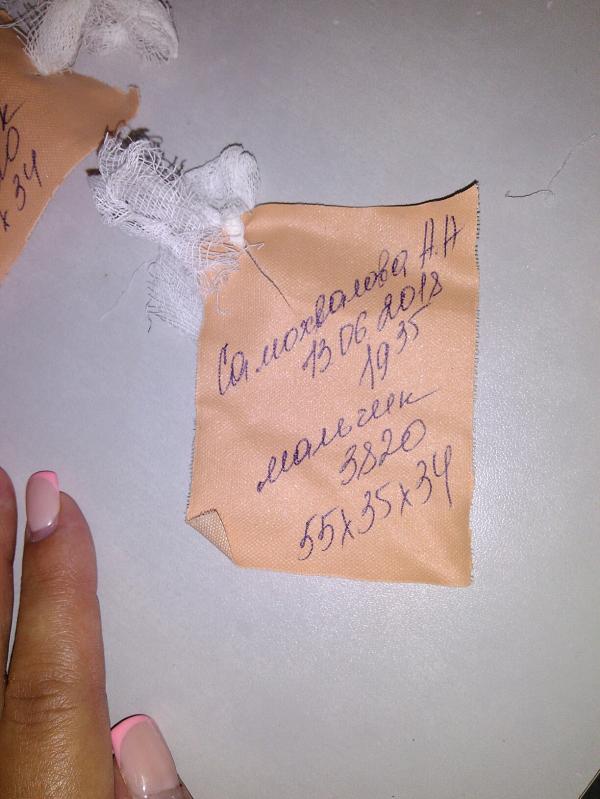 к
20
х 34
Самохвалова А.А
13 06 2018
19 35
мальчик
3820
55х35х34